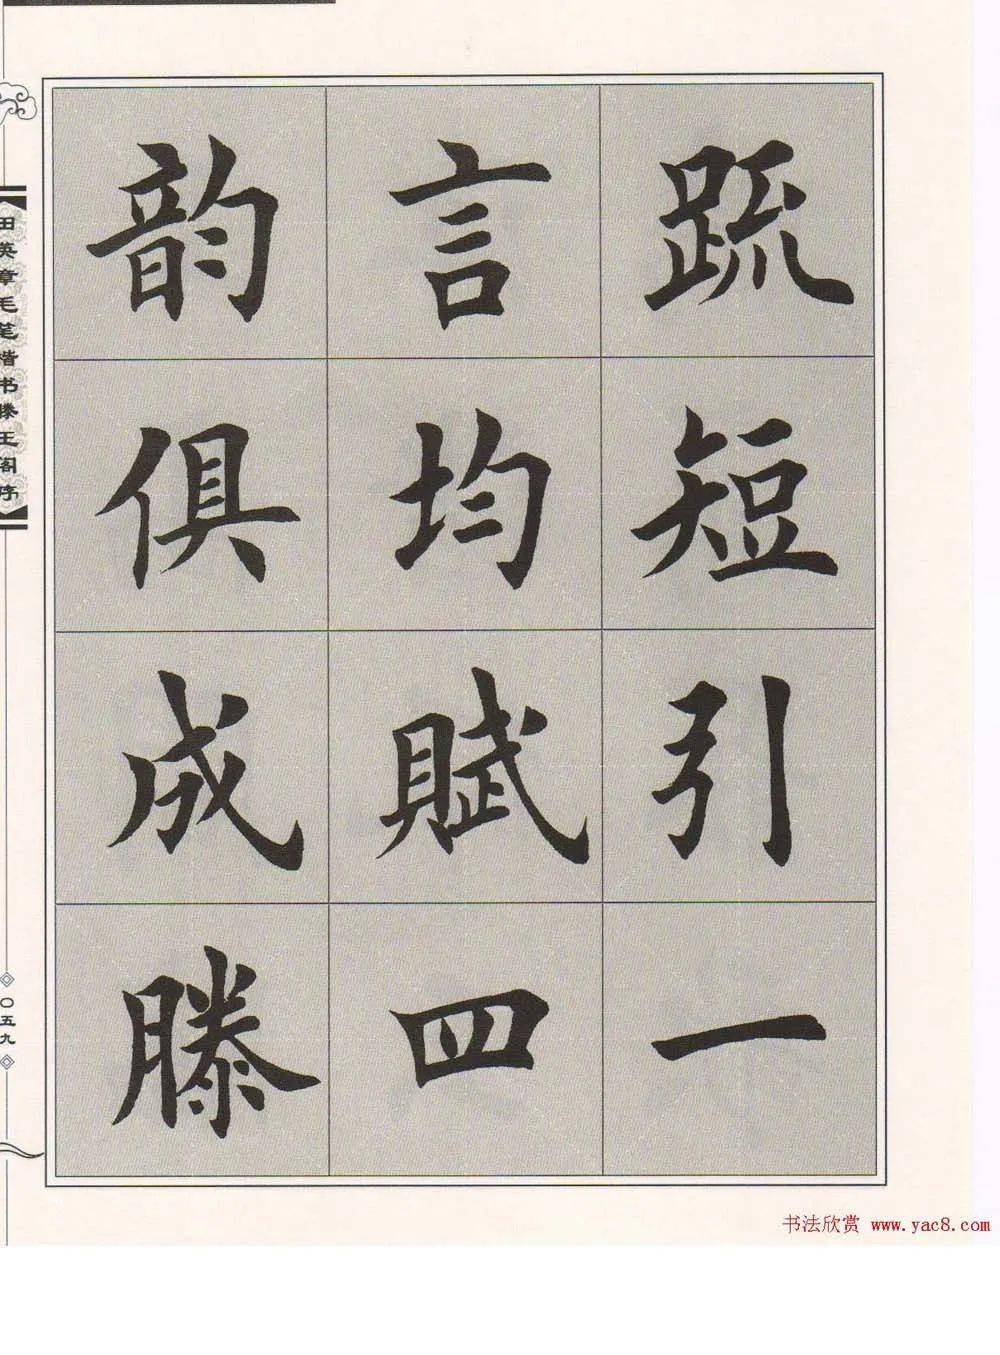 疏短引一
言均賦四
韵俱成滕
田英章毛笔楷书滕王阁序
〇五九
书法欣赏 www.yac8.com